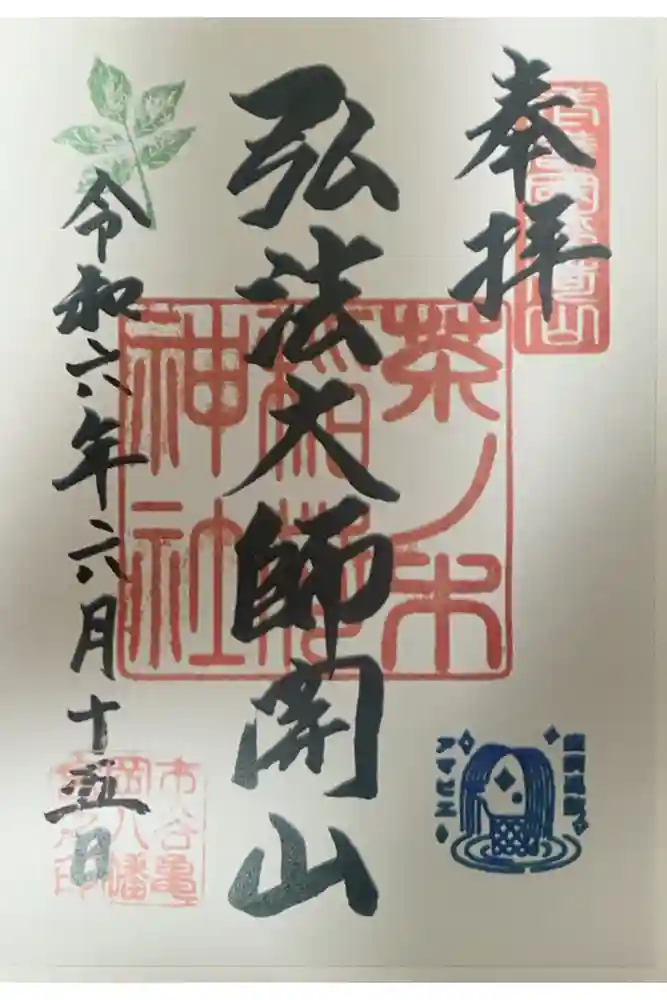 奉拝
弘法大師開山
令和六年六月十五日
茶ノ木
稲荷
神社
市谷亀
岡八幡
アマビエ